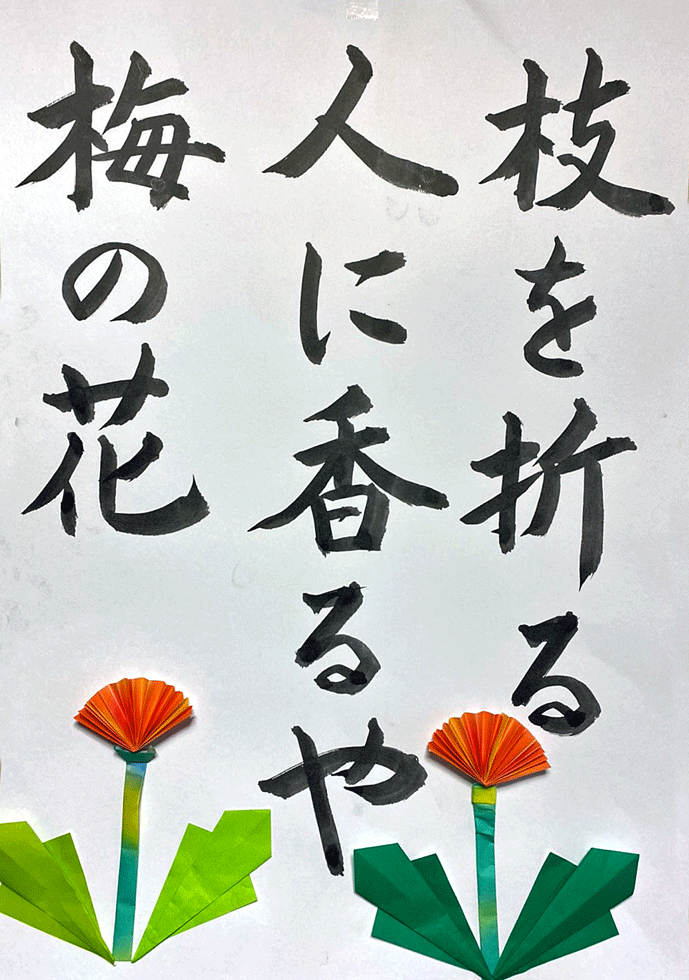 枝を折る
人に香るや
梅の花